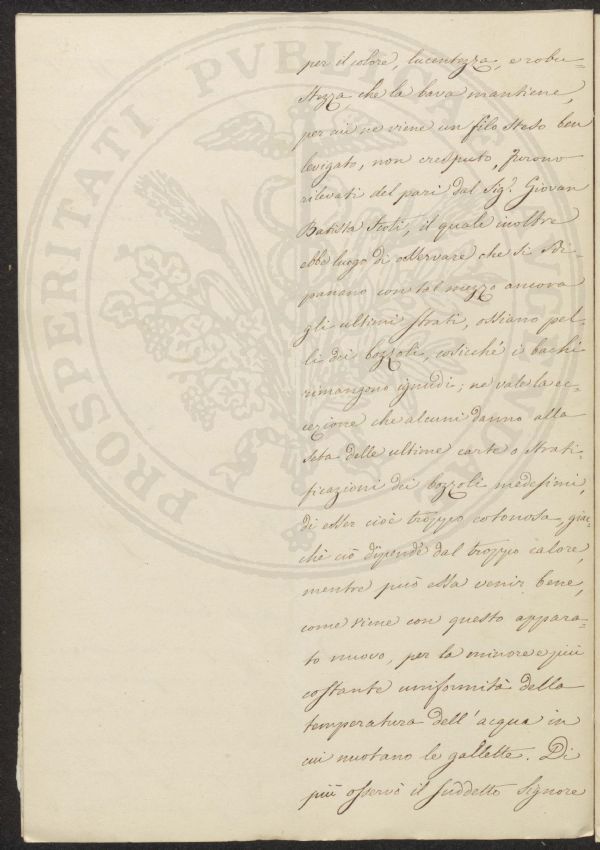 per il colore, lucentezza, e robu=
stezza, che la bava mantiene,
per cui ne viene un filo steso ben
levigato, non cresputo, furono
rilevati del pari dal Sig.r Giovan
Batista Scoti, il quale inoltre
ebbe luogo di osservare che si di=
panano con tal mezzo ancora
gli ultimi strati, ossiano pel=
li dei bozzoli, cosicché i bachi
rimangono ignudi; ne vale la ec=
cezione che alcuni danno alla
seta delle ultime carte o strati=
ficazioni dei bozzoli medesimi,
di esser cioè troppo cotonosa, giac=
chè ciò dipende dal troppo calore,
mentre può essa venir bene,
come viene con questo appara=
to nuovo, per la minore e più
costante uniformità della
temperatura dell'acqua in
cui nuotano le gallette. Di
più osservò il suddetto Signore
PROSPERITATI PVBLICAE